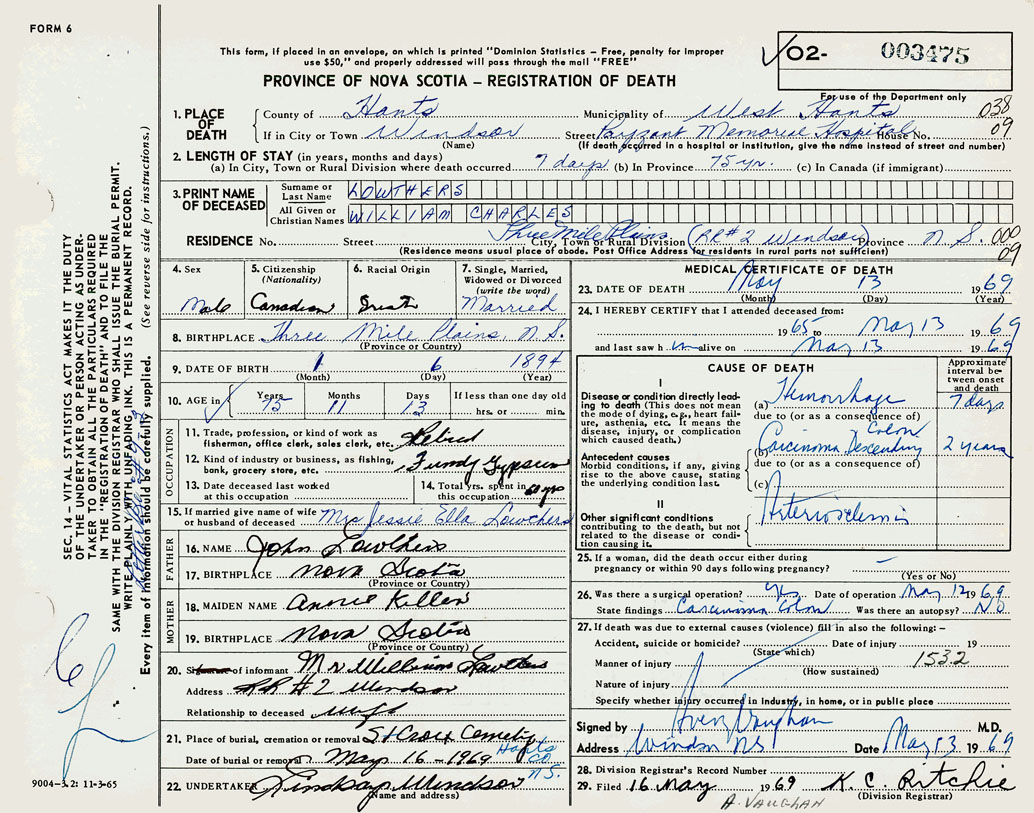 FORM 6
This form, if placed in an envelope, on which is printed "Dominion Statistics – Free, penalty for improper
use $50," and properly addressed will pass through the mail "FREE"
PROVINCE OF NOVA SCOTIA – REGISTRATION OF DEATH
✓02- 003475
For use of the Department only
SEC. 14 – VITAL STATISTICS ACT MAKES IT THE DUTY
OF THE UNDERTAKER OR PERSON ACTING AS UNDER-
TAKER TO OBTAIN ALL THE PARTICULARS REQUIRED
IN THE "REGISTRATION OF DEATH" AND TO FILE THE
SAME WITH THE DIVISION REGISTRAR WHO SHALL ISSUE THE BURIAL PERMIT.
WRITE PLAINLY WITH UNFADING INK. THIS IS A PERMANENT RECORD.
Every item of information should be carefully supplied. (See reverse side for instructions.)
1. PLACE OF DEATH County of Hants Municipality of West Hants 038
If in City or Town Windsor Street Payzant Memorial Hospital House No. 09
(Name) (If death occurred in a hospital or institution, give the name instead of street and number)
2. LENGTH OF STAY (in years, months and days)
(a) In City, Town or Rural Division where death occurred 7 days (b) In Province 75 yr. (c) In Canada (if immigrant)
3. PRINT NAME OF DECEASED Surname or Last Name LOWTHERS
All Given or Christian Names WILLIAM CHARLES
RESIDENCE No. Street Three Mile Plains (RR#2 Windsor) Province N.S. 000
City, Town or Rural Division 09
(Residence means usual place of abode. Post Office Address for residents in rural parts not sufficient)
4. Sex 5. Citizenship (Nationality) 6. Racial Origin 7. Single, Married, Widowed or Divorced (write the word)
Male Canadian Married
8. BIRTHPLACE Three Mile Plains, N.S.
(Province or Country)
9. DATE OF BIRTH 1 6 1894
(Month) (Day) (Year)
10. AGE in Years Months Days If less than one day old
✓ 75 11 13 hrs. or min.
OCCUPATION
11. Trade, profession, or kind of work as fisherman, office clerk, sales clerk, etc. Retired
12. Kind of industry or business, as fishing, bank, grocery store, etc. Fundy Gypsum
13. Date deceased last worked at this occupation
14. Total yrs. spent in this occupation yrs
15. If married give name of wife or husband of deceased Mrs Jessie Ella Lowthers
FATHER
16. NAME John Lowthers
17. BIRTHPLACE Nova Scotia
(Province or Country)
MOTHER
18. MAIDEN NAME Annie Killen
19. BIRTHPLACE Nova Scotia
(Province or Country)
20. Signature of informant Mrs William Lowthers
Address RR #2 Windsor
Relationship to deceased wife
21. Place of burial, cremation or removal St Croix Cemetery
Hants Co. N.S.
Date of burial or removal May 16 – 1969
22. UNDERTAKER Lindsay Windsor
(Name and address)
9004–3.2: 11-3-65
MEDICAL CERTIFICATE OF DEATH
23. DATE OF DEATH May 13 1969
(Month) (Day) (Year)
24. I HEREBY CERTIFY that I attended deceased from:
1965 to May 13 1969
and last saw h im alive on May 13 1969
CAUSE OF DEATH
Approximate interval between onset and death
I
Disease or condition directly leading to death (This does not mean the mode of dying, e.g., heart failure, asthenia, etc. It means the disease, injury, or complication which caused death.)
(a) Hemorrhage 7 days
due to (or as a consequence of)
Colon
(b) Carcinoma Descending 2 years
due to (or as a consequence of)
(c)
Antecedent causes
Morbid conditions, if any, giving rise to the above cause, stating the underlying condition last.
II
Other significant conditions contributing to the death, but not related to the disease or condition causing it.
Arteriosclerosis
25. If a woman, did the death occur either during pregnancy or within 90 days following pregnancy? –
(Yes or No)
26. Was there a surgical operation? Yes Date of operation May 12 1969
State findings Carcinoma Colon Was there an autopsy? NO
27. If death was due to external causes (violence) fill in also the following: –
Accident, suicide or homicide? Date of injury 19
(State which)
Manner of injury 1532
(How sustained)
Nature of injury
Specify whether injury occurred in Industry, in home, or in public place
Signed by Avery Vaughan M.D.
Address Windsor NS Date May 13 1969
28. Division Registrar's Record Number
29. Filed 16 May 1969 K. C. Ritchie
(Division Registrar)
A. VAUGHAN